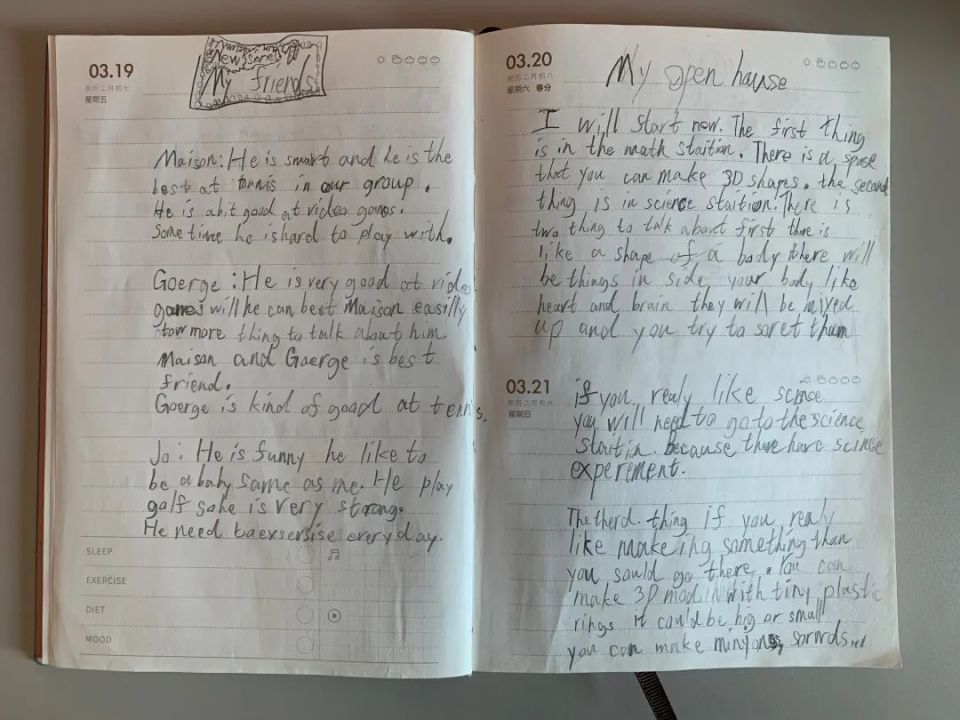 03.19
农历二月初七
星期五
News
My friends
Maison: He is smart and he is the
best at tennis in our group.
He is a bit good at video games.
Sometime he is hard to play with.
Goerge: He is very good at video
games will he can beat Maison easilly
more thing to talk about him
Maison and Goerge is best
friend.
Goerge is kind of good at tennis.
Jo: He is funny he like to
be a baby same as me. He play
golf sohe is very strong.
He need to exsersise every day.
SLEEP
EXERCISE
DIET
MOOD
03.20
农历二月初八
星期六 春分
My open house
I will start now. The first thing
is in the math staition. There is a spase
that you can make 3D shapes. the second
thing is in science staition. There is
two thing to talk about first there is
like a shape of a body there will
be things in side your body like
heart and brain they will be mixed
up and you try to soret tham
03.21
农历二月初九
星期日
if you realy like scinse
you will need to go to the science
staitin. because there have scinse
experement.
The therd thing if you realy
like makeing something than
you sould go there. You can
make 3D with tiny plastic
rings it could be big or small
you can make minyons,